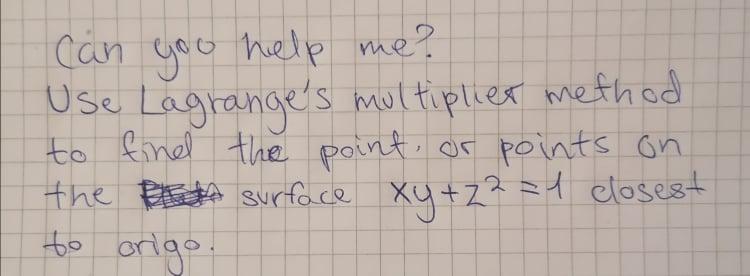 Can you help me?
Use Lagrange's multiplier method
to find the point. or points on
the surface xy+z²=1 closest
to origo.